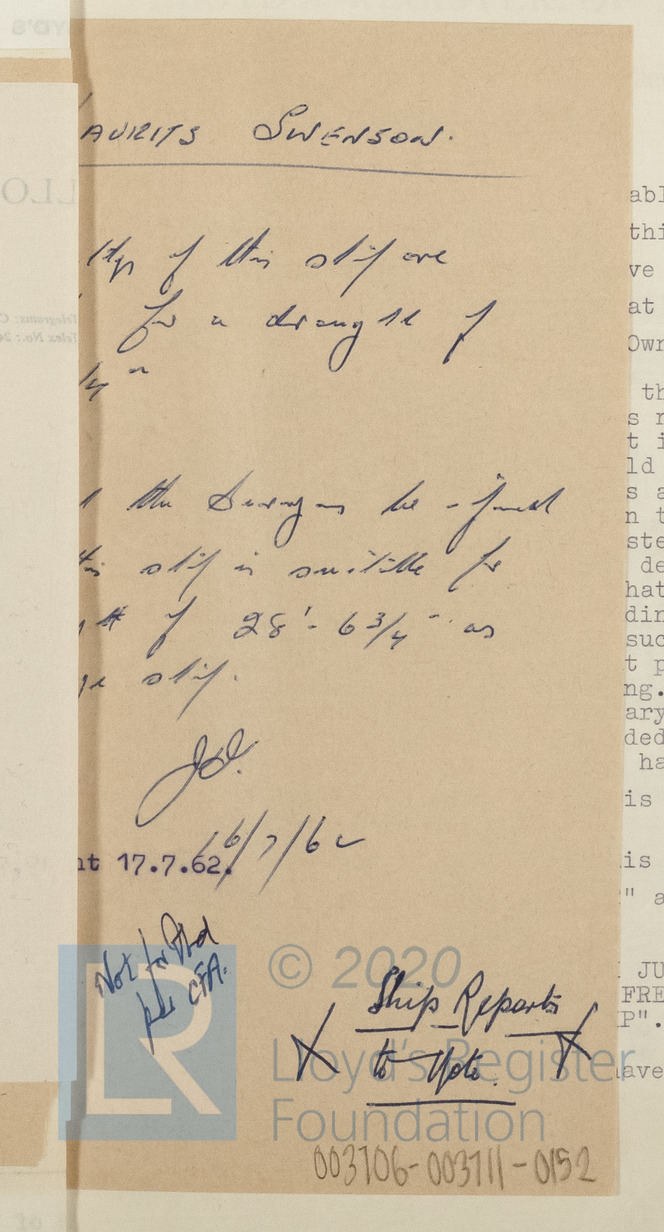 AURITS SWENSON.
of this ship are
for a draught of
the Surveyors be informed
this ship is suitable for
of 28'-6 3/4" as
ship.
16/7/62
nt 17.7.62.
Not for
per
Ship Reports
to Note.
© 2020
Lloyd's Register
Foundation
LR
003706-003711-0152
abl
thi
ve
at
Own
th
s r
t i
ld
s a
n t
ste
de
hat
din
suc
t p
ng.
ary
ded
ha
is
is
" a
JU
FRE
P".
ave